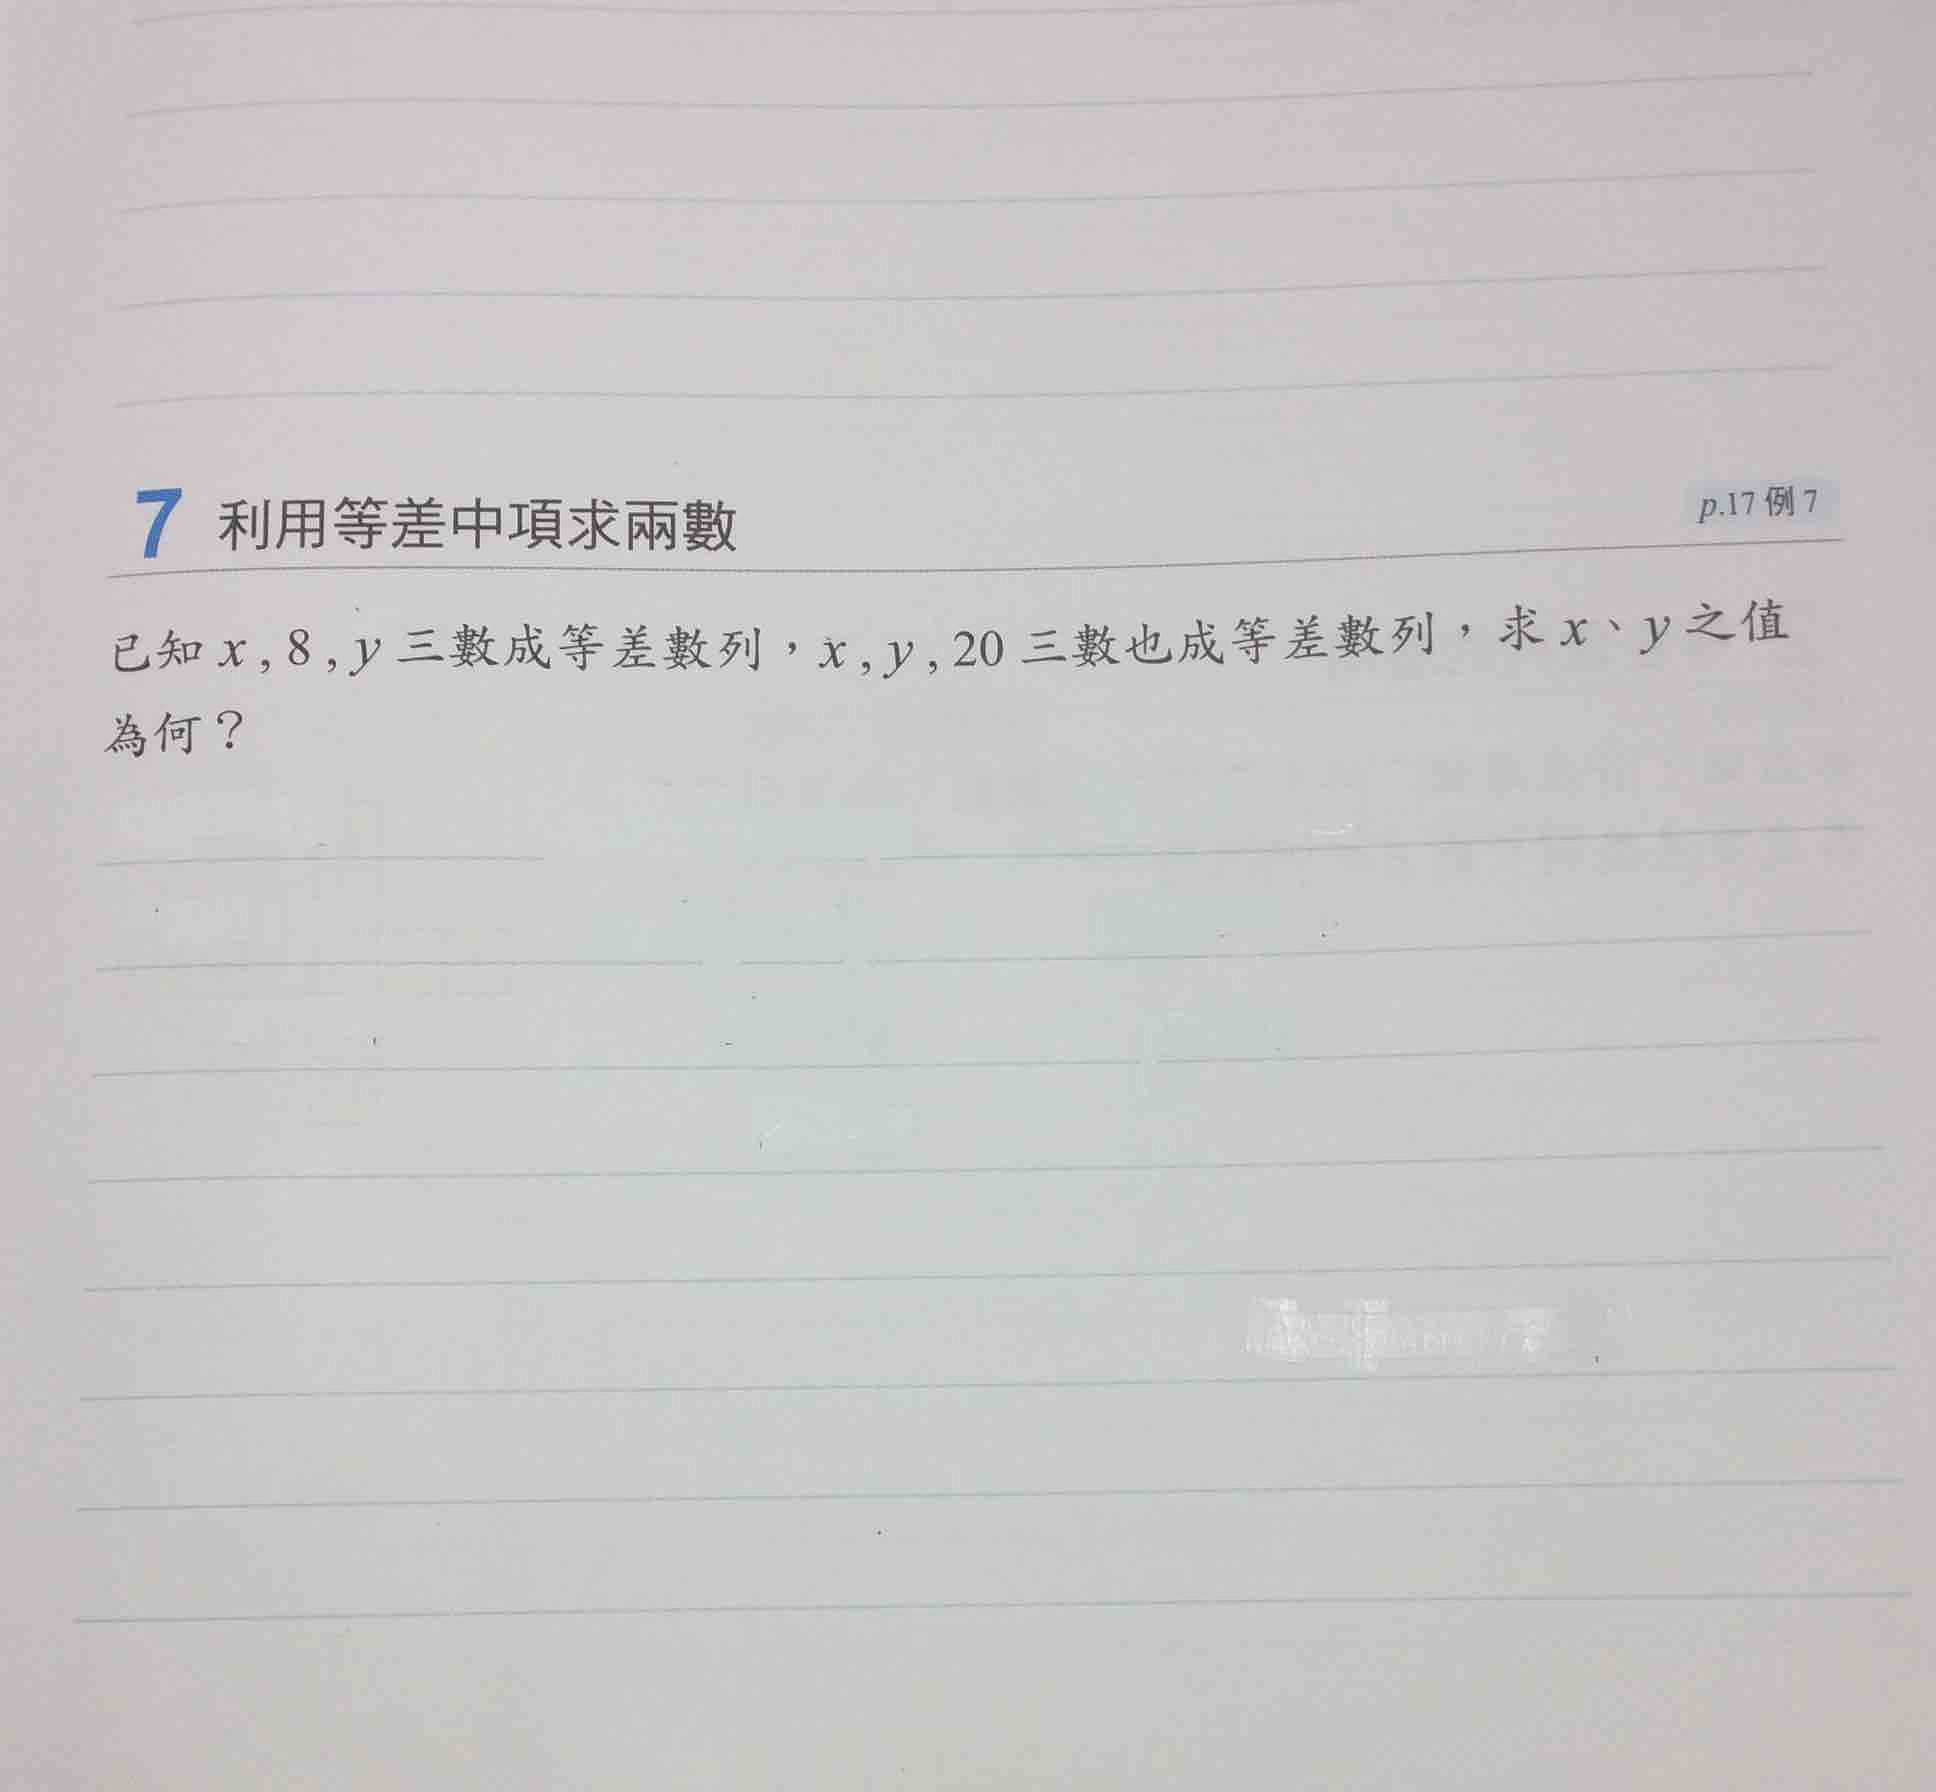 7 利用等差中項求兩數 p.17 例 7
已知 x , 8 , y 三數成等差數列，x , y , 20 三數也成等差數列，求 x、y 之值
為何？